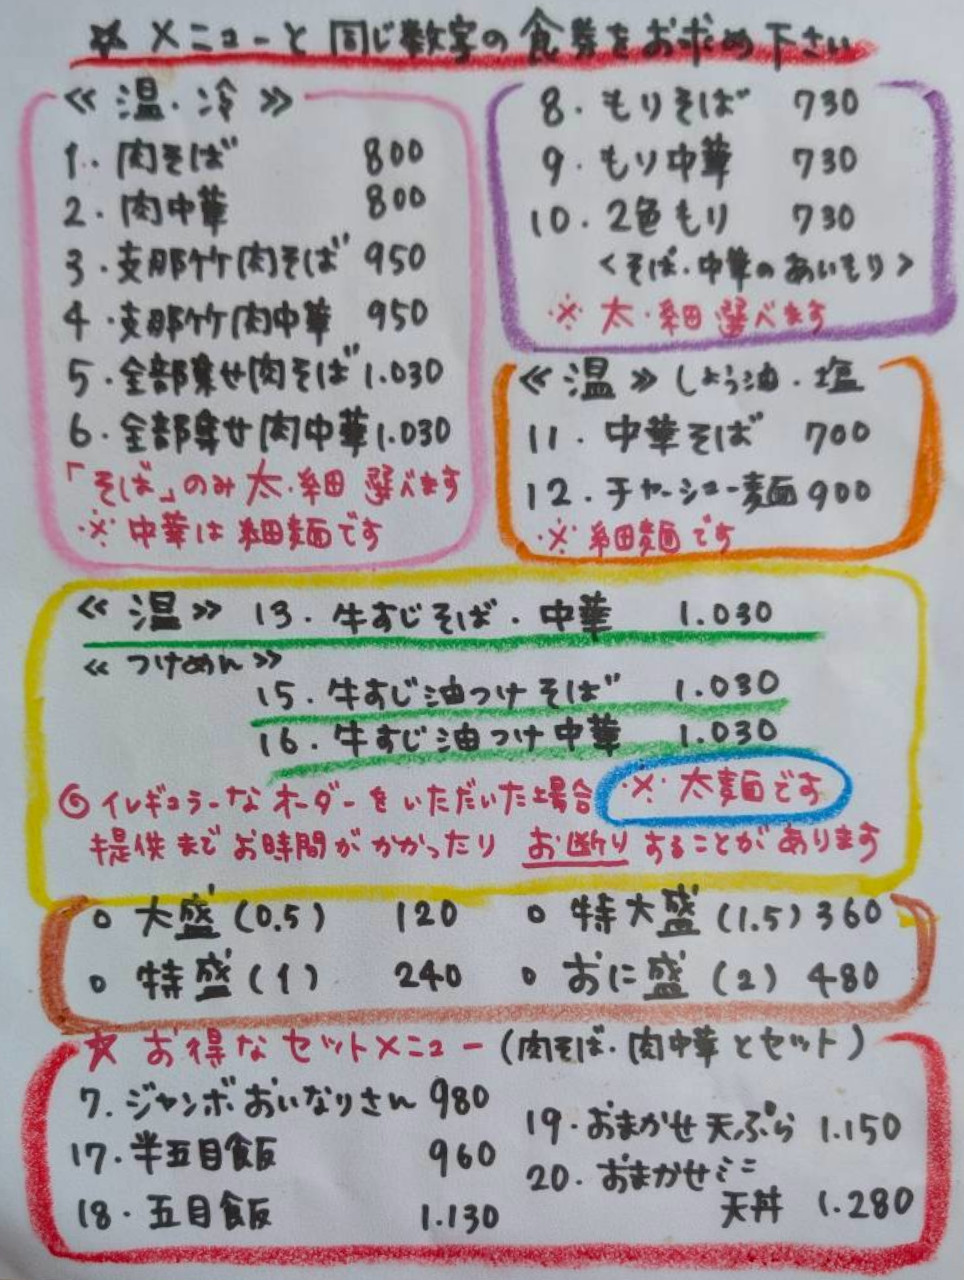 ☆ メニューと同じ数字の食券をお求め下さい
≪ 温・冷 ≫
1. 肉そば 800
2. 肉中華 800
3. 支那竹肉そば 950
4. 支那竹肉中華 950
5. 全部乗せ肉そば 1.030
6. 全部乗せ肉中華 1.030
「そば」のみ 太・細 選べます
※ 中華は細麺です
8. もりそば 730
9. もり中華 730
10. 2色もり 730
<そば・中華のあいもり>
※ 太・細 選べます
≪ 温 ≫ しょう油・塩
11. 中華そば 700
12. チャーシュー麺 900
※ 細麺です
≪ 温 ≫ 13. 牛すじそば・中華 1.030
≪ つけめん ≫
15. 牛すじ油つけそば 1.030
16. 牛すじ油つけ中華 1.030
◎ イレギュラーなオーダーをいただいた場合 ※ 太麺です
提供までお時間がかかったり お断りすることがあります
○ 大盛 (0.5) 120 ○ 特大盛 (1.5) 360
○ 特盛 (1) 240 ○ おに盛 (2) 480
☆ お得なセットメニュー (肉そば・肉中華とセット)
7. ジャンボおいなりさん 980
17. 半五目飯 960
18. 五目飯 1.130
19. おまかせ天ぷら 1.150
20. おまかせミニ
天丼 1.280